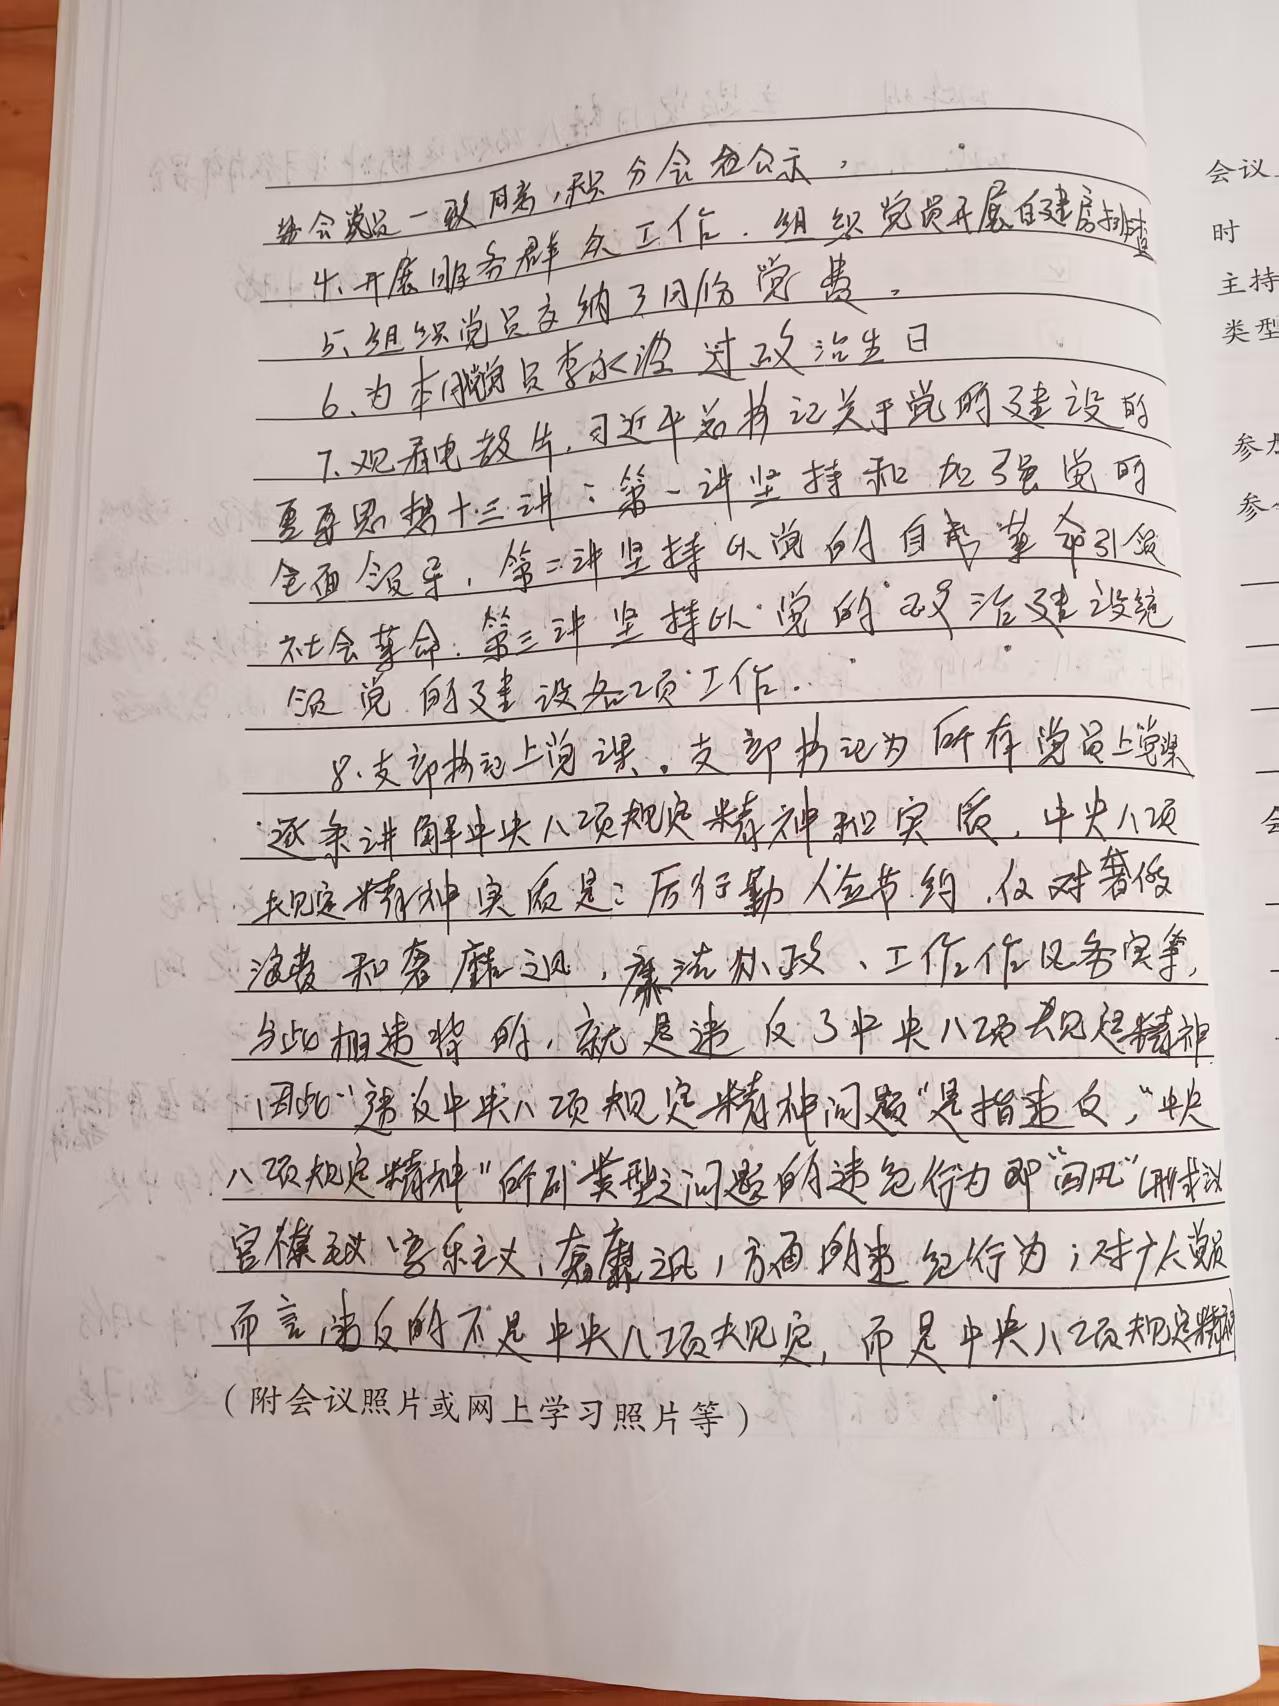 参会党员一致同意,积分会后公示。
4、开展服务群众工作.组织党员开展自建房排查
5、组织党员交纳3月份党费。
6、为本月党员李永 过政治生日
7、观看电教片,习近平总书记关于党的建设的
重要思想十三讲:第一讲坚持和加强党的
全面领导,第二讲坚持以党的自我革命引领
社会革命.第三讲坚持以党的政治建设统
领党的建设各项工作.
8.支部书记上党课。支部书记为所有党员上党课
逐条讲解中央八项规定精神和实质,中央八项
规定精神实质是:厉行勤俭节约,反对奢侈
浪费和奢靡之风,廉洁从政、工作作风务实等,
与此相违背的,就是违反了中央八项规定精神
因此"违反中央八项规定精神问题"是指违反,"中央
八项规定精神"所列类型之问题的违纪行为即"四风"(形式主义
官僚主义 享乐主义,奢靡之风,方面的违纪行为;对广大党员
而言,违反的不是中央八项规定,而是中央八项规定精神
(附会议照片或网上学习照片等)
会议
时
主持
类型
参加
参
会